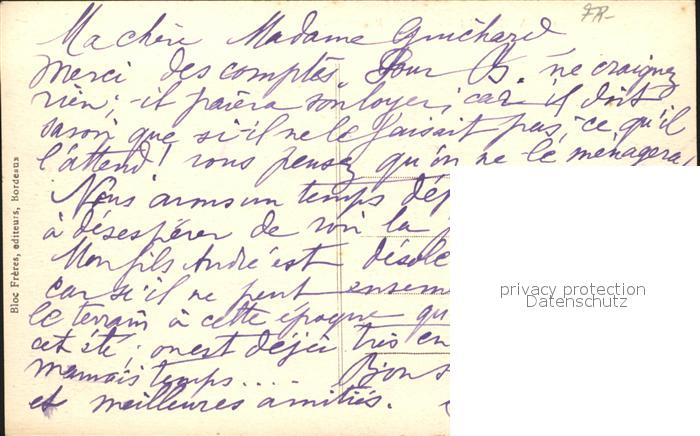 FR-
Ma chère Madame Guichard
Merci des comptes. Pour B. ne craignez
rien; il paiera son loyer, car il doit
savoir que s'il ne le faisait pas, ce qu'il
l'attend! vous pensez qu'on ne le ménagera,
Nous avons un temps dép
à désespérer de voir la
Mon fils André est désolé
car s'il ne peut ensem
le terrain à cette époque qu
cet été; on est déjà très en
mauvais temps.... Bons
et meilleures amitiés.
Bloc Frères, éditeurs, Bordeaux
privacy protection
Datenschutz